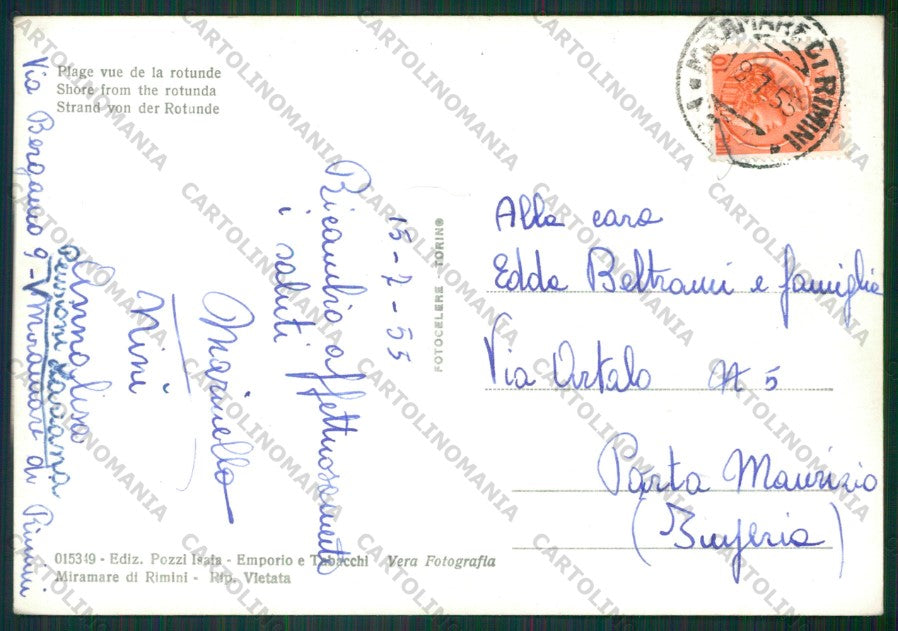 Plage vue de la rotunde
Shore from the rotunda
Strand von der Rotunde
MIRAMARE DI RIMINI
15-7-55
Ricambio affettuosamente
i saluti
Marinella
Nini
Annalisa
Pensione Laviana
Via Bergamo 9 - Miramare di Rimini
FOTOCELERE - TORINO
Alla cara
Edda Beltrami e famiglia
Via Artalo N 5
Porto Maurizio
(Imperia)
015349 - Ediz. Pozzi Isaia - Emporio e Tabacchi Vera Fotografia
Miramare di Rimini - Rip. Vietata
CARTOLINOMANIA